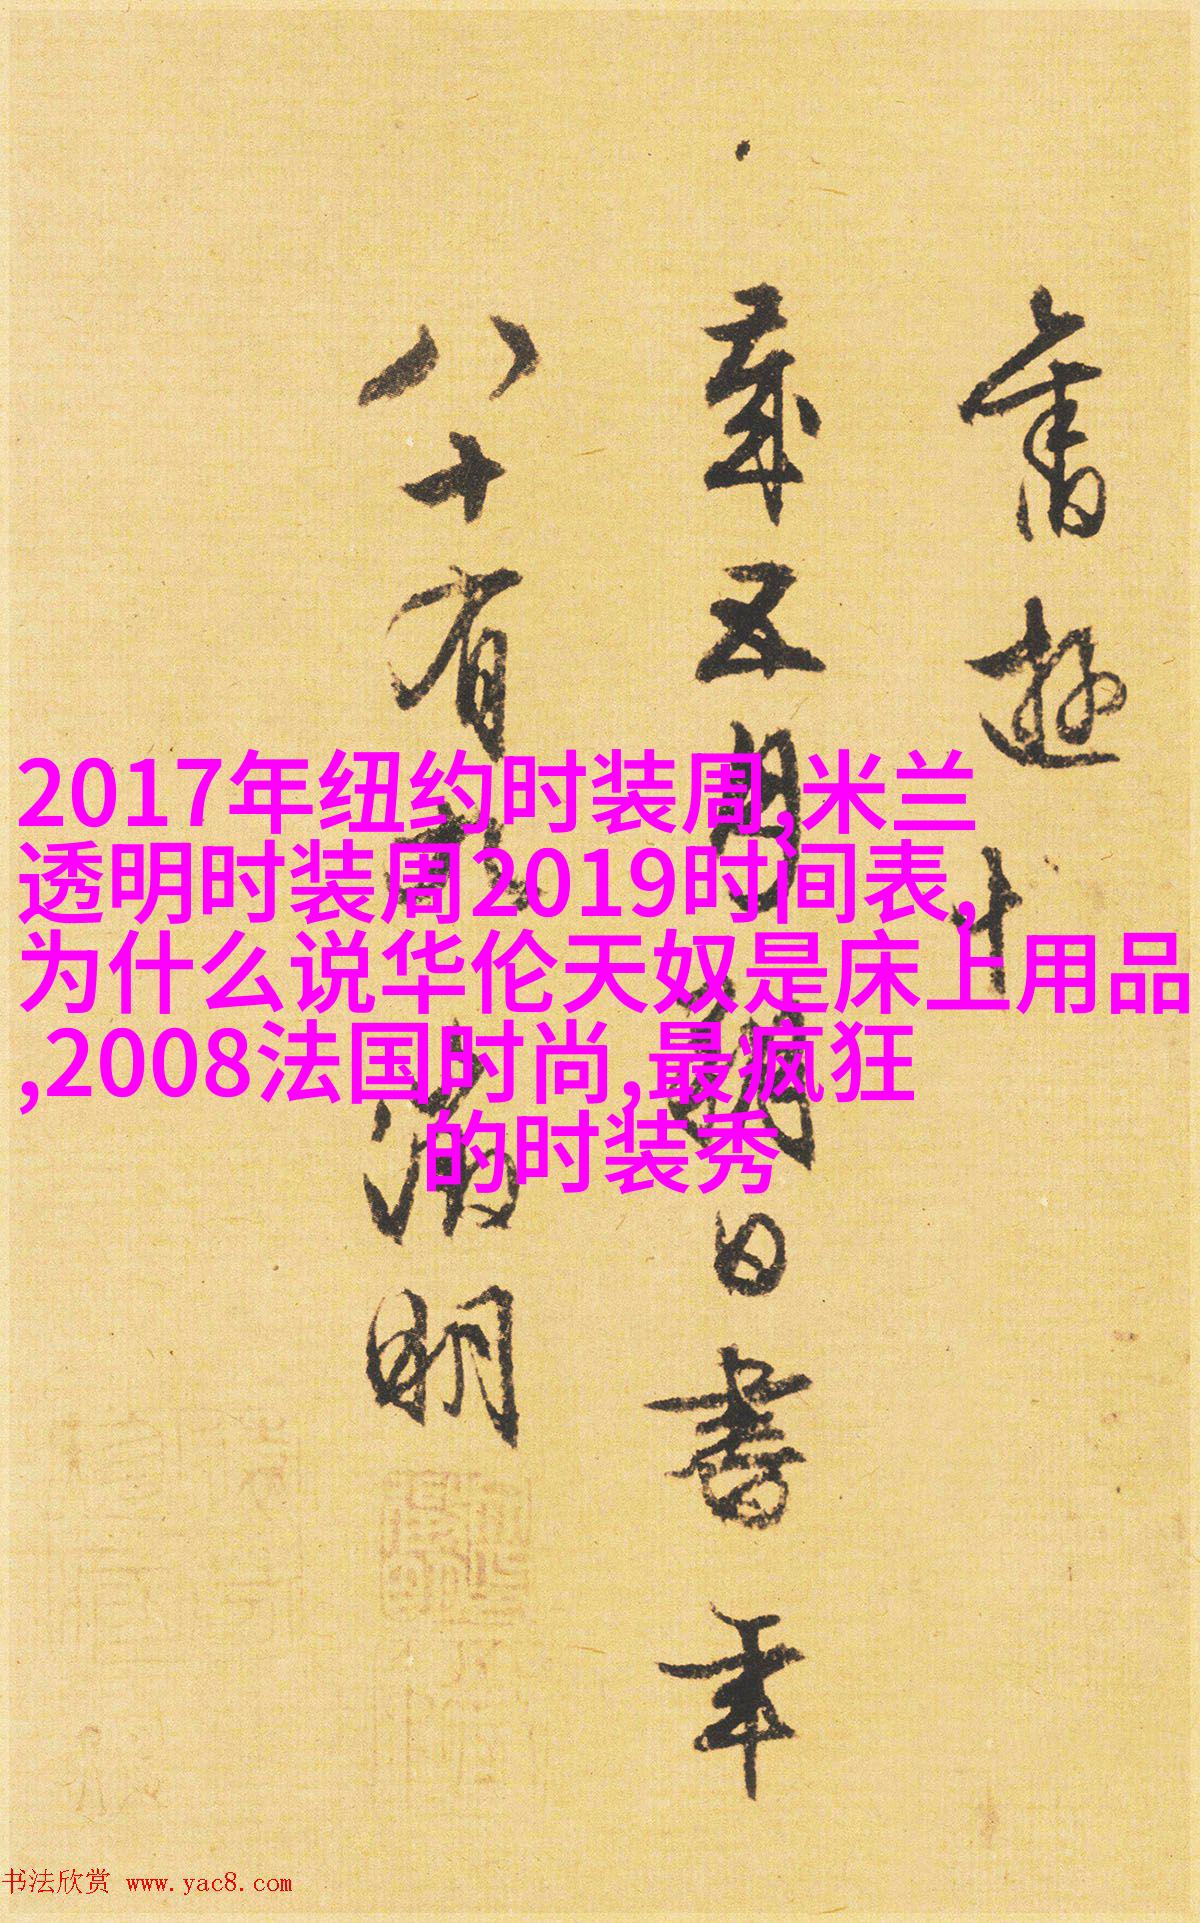 舊遊十
歲五月朔日書年
八十有
徵明
2017年纽约时装周,米兰
透明时装周2019时间表,
为什么说华伦天奴是床上用品
,2008法国时尚,最疯狂
的时装秀
书法欣赏 www.yac8.com